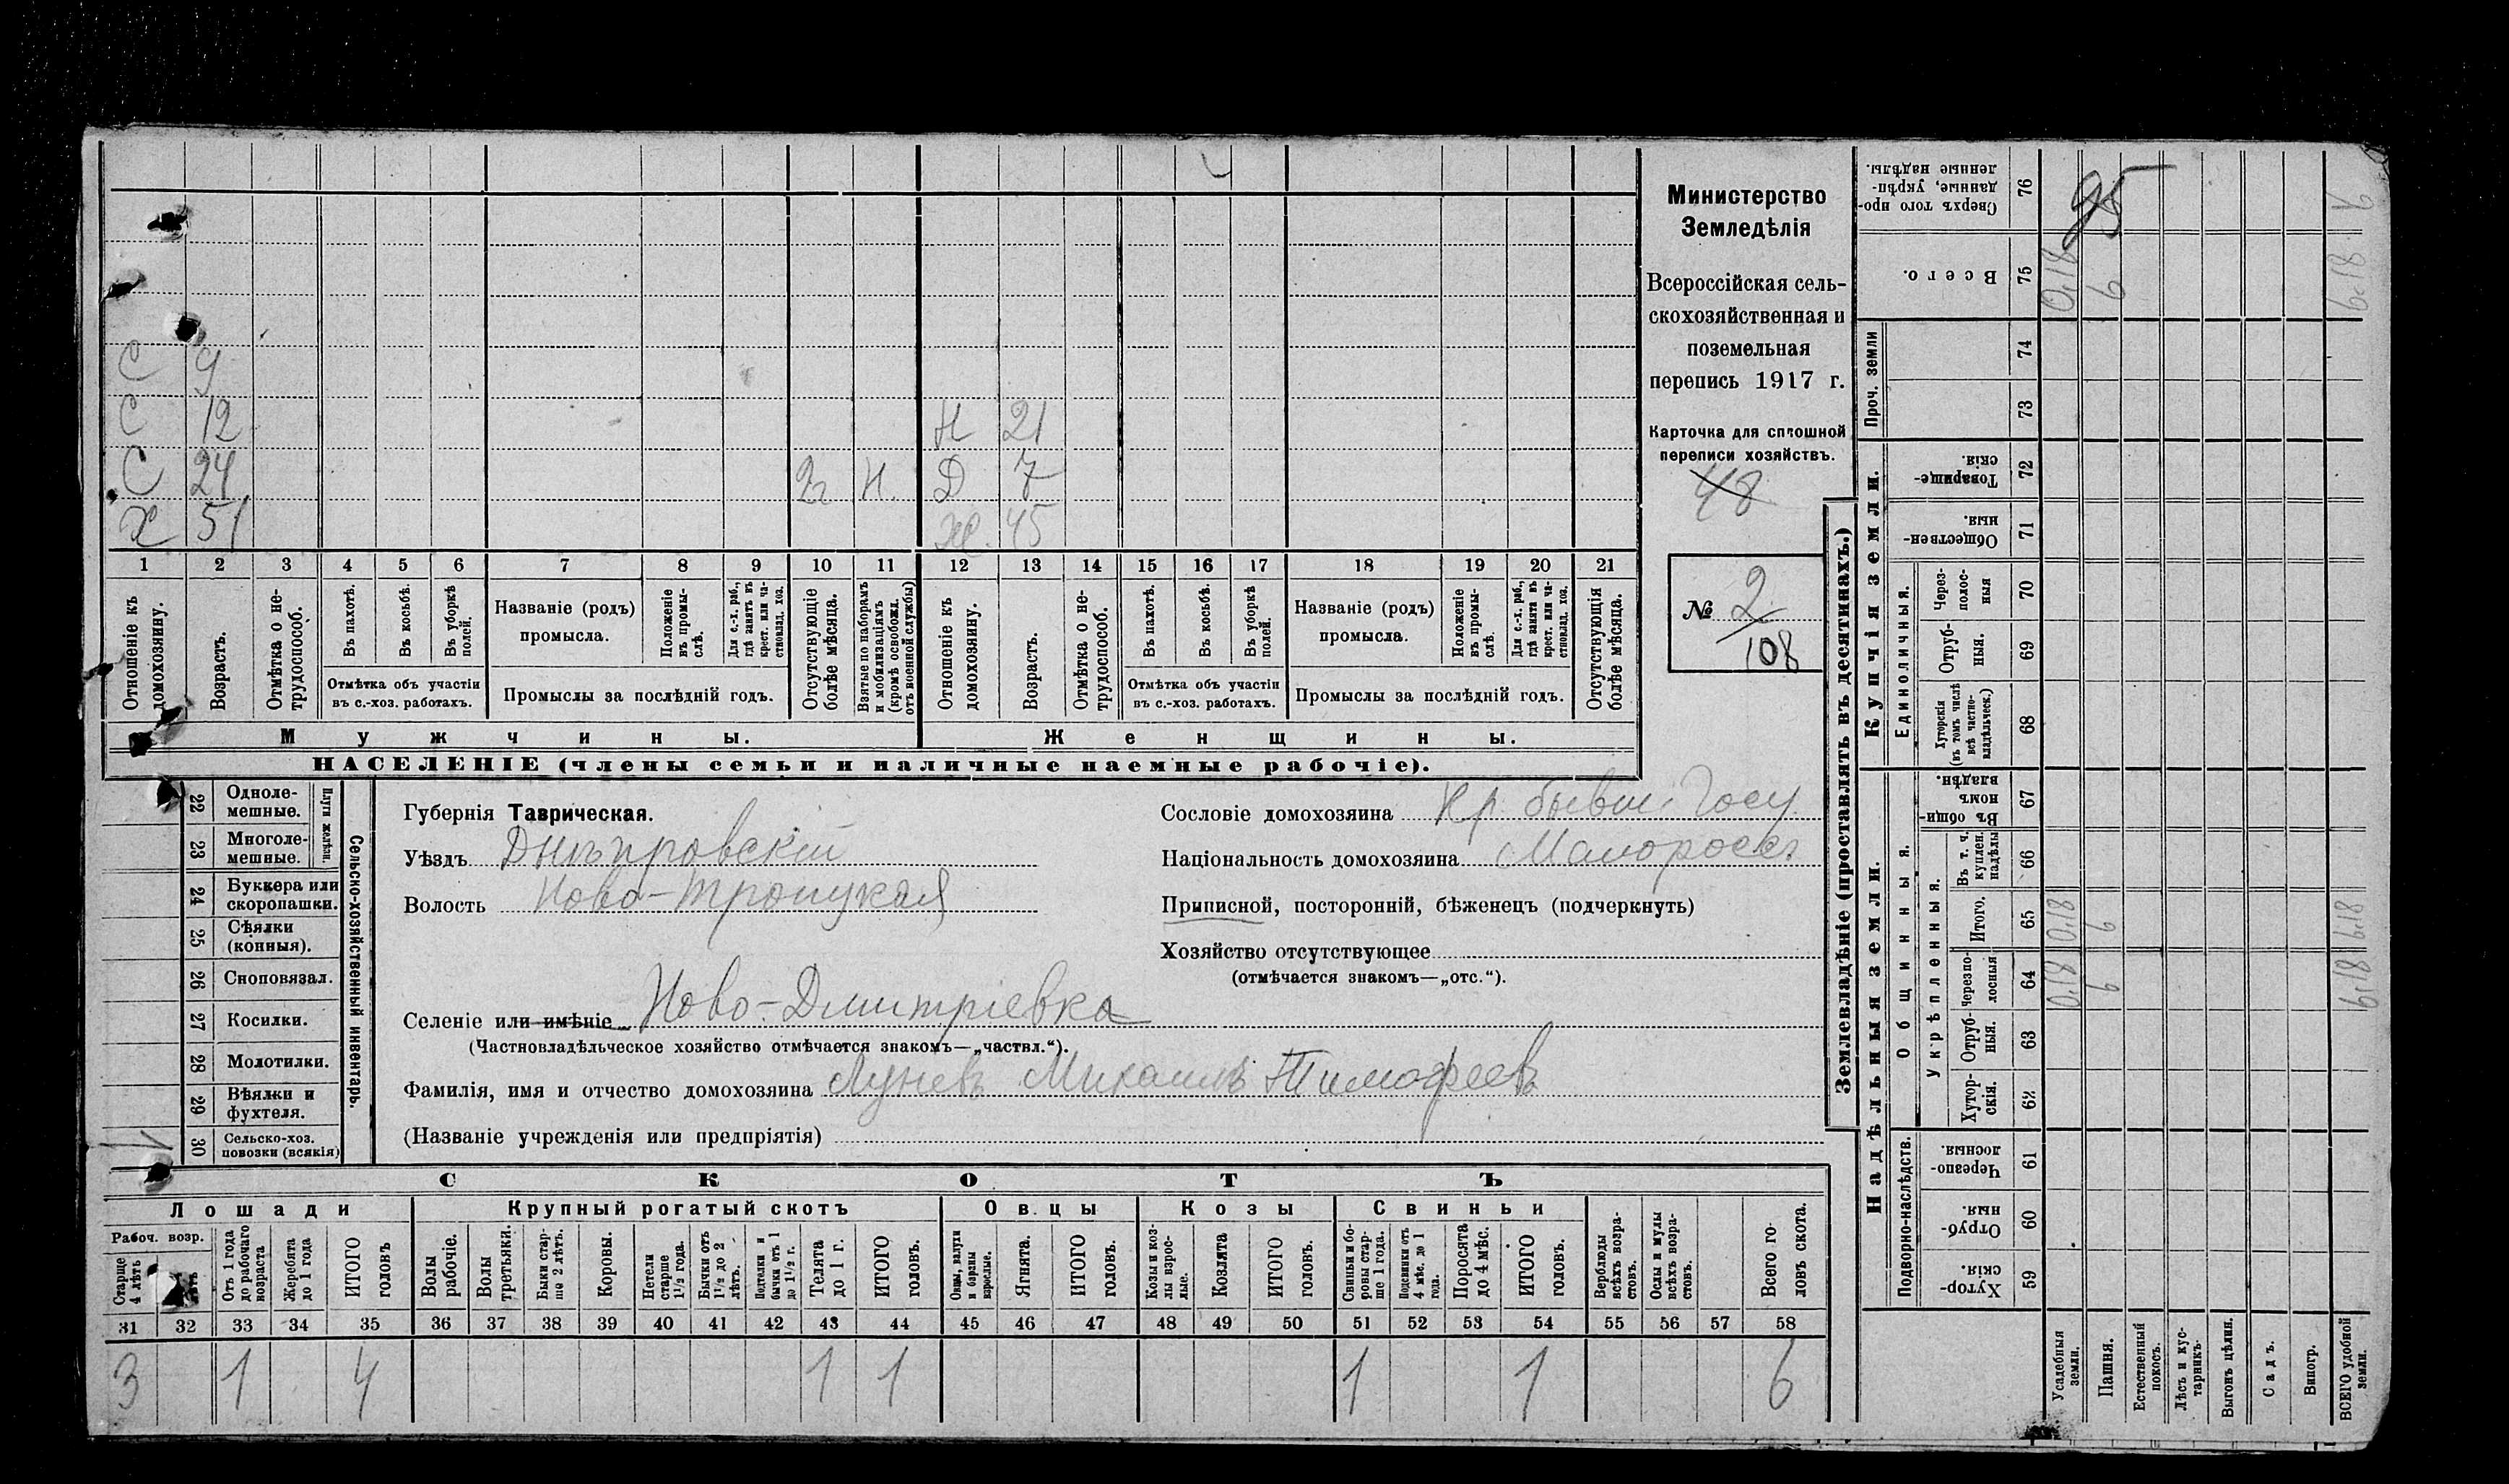 С 9
С 12 Н 21
С 24 2г Н. Д 7
Х 51 Ж. 45
1 2 3 4 5 6 7 8 9 10 11 12 13 14 15 16 17 18 19 20 21
Отношеніе къ домохозяину.
Возрастъ.
Отмѣтка о не-трудоспособ.
Въ пахотѣ.
Въ косьбѣ.
Въ уборкѣ полей.
Отмѣтка объ участіи
въ с.-хоз. работахъ.
Названіе (родъ)
промысла.
Положеніе въ промы-слѣ.
Для с.-х. раб., гдѣ занятъ въ крест. или ча-стновлад. хоз.
Промыслы за послѣдній годъ.
Отсутствующіе болѣе мѣсяца.
Взятые по наборамъ и мобилизаціямъ (кромѣ освобожд. отъ военной службы)
Отношеніе къ домохозяину.
Возрастъ.
Отмѣтка о не-трудоспособ.
Въ пахотѣ.
Въ косьбѣ.
Въ уборкѣ полей.
Отмѣтка объ участіи
въ с.-хоз. работахъ.
Названіе (родъ)
промысла.
Положеніе въ промы-слѣ.
Для с.-х. раб., гдѣ занята въ крест. или ча-стновлад. хоз.
Промыслы за послѣдній годъ.
Отсутствующія болѣе мѣсяца.
Мужчины.
Женщины.
НАСЕЛЕНІЕ (члены семьи и наличные наемные рабочіе).
Министерство
Земледѣлія
Всероссійская сель-
скохозяйственная и
поземельная
перепись 1917 г.
Карточка для сплошной
переписи хозяйствъ.
48
№ 2
108
22 Одноле-мешные.
23 Многоле-мешные.
Плуги желѣзн.
24 Буккера или скоропашки.
25 Сѣялки (конныя).
26 Сноповязал.
27 Косилки.
28 Молотилки.
29 Вѣялки и фухтеля.
30 Сельско-хоз. повозки (всякія)
1
Сельско-хозяйственный инвентарь.
Губернія Таврическая.
Уѣздъ Днѣпровскій
Волость Ново-Троицкая
Сословіе домохозяина Кр. бывш. Госу.
Національность домохозяина Малороссъ
Приписной, посторонній, бѣженецъ (подчеркнуть)
Хозяйство отсутствующее
(отмѣчается знакомъ—„отс.“).
Селеніе или имѣніе Ново-Дмитріевка
(Частновладѣльческое хозяйство отмѣчается знакомъ—„частвл.“).
Фамилія, имя и отчество домохозяина Луневъ Михаилъ Тимофеевъ
(Названіе учрежденія или предпріятія)
СКОТЪ
Лошади
Крупный рогатый скотъ
Овцы
Козы
Свиньи
Рабоч. возр.
Старше 4 лѣтъ
Отъ 1 года до рабочаго возраста
Жеребята до 1 года
ИТОГО головъ
Волы рабочіе.
Волы третьяки.
Быки стар-ше 2 лѣтъ.
Коровы.
Нетели старше 1½ года.
Бычки отъ 1½ до 2 лѣтъ.
Подтелки и бычки отъ 1 до 1½ г.
Телята до 1 г.
ИТОГО головъ.
Овцы, валухи и бараны взрослые.
Ягнята.
ИТОГО головъ.
Козы и коз-лы взрос-лые.
Козлята
ИТОГО головъ.
Свиньи и бо-ровы стар-ше 1 года.
Подсвинки отъ 4 мѣс. до 1 года.
Поросята до 4 мѣс.
ИТОГО головъ.
Верблюды всѣхъ возра-стовъ.
Ослы и мулы всѣхъ возра-стовъ.
Всего го-ловъ скота.
31 32 33 34 35 36 37 38 39 40 41 42 43 44 45 46 47 48 49 50 51 52 53 54 55 56 57 58
3 1 4 1 1 1 1 6
Землевладѣніе (проставлять въ десятинахъ.)
Надѣльныя земли.
Купчія земли.
Проч. земли
Подворно-наслѣдств.
Общинныя.
Укрѣпленныя.
Единоличныя.
Сверхъ того про-данные, укрѣп-ленные надѣлы. 76 6
25
Всего. 75 0,18 6 6,18
74
73
Товарище-скія. 72
Обществен-ныя. 71
Через-полос-ныя 70
Отруб-ныя. 69
Хуторскія (въ томъ числѣ всѣ частно-владѣльческ.) 68
Въ общин-номъ владѣн. 67
Въ т. ч. куплен. надѣлы 66
Итого. 65 0,18 6 6,18
Черезпо-лосныя 64 0,18 6 6,18
Отруб-ныя. 63
Хутор-скія. 62
Черезпо-лосныя. 61
Отруб-ныя. 60
Хутор-скія. 59
Усадебныя земли.
Пашня.
Естественный покосъ.
Лѣсъ и кус-тарникъ.
Выгонъ цѣлин.
Садъ.
Виногр.
ВСЕГО удобной земли.